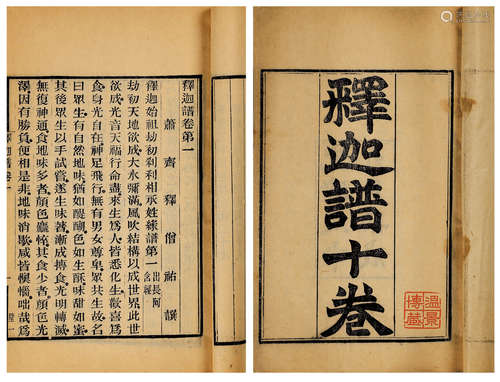 釋迦譜十卷
溫景
博藏
釋迦譜卷第一
蕭齊釋僧祐譔
釋迦始祖劫初刹利相承姓緣譜第一出長阿含經
劫初天地欲成大水彌滿風吹結構以成世界此世
欲成光音天福行命盡來生爲人皆悉化生歡喜爲
食身光自在神足飛行無有男女尊卑眾共生故名
曰眾生有自然地味猶如醍醐色如生酥味甜如蜜
其後眾生以手試嘗遂生味著漸成摶食光明轉滅
無復神通食地味多者顏色麤悴其食少者顏色光
澤因有勝負便相是非地味消歇咸皆懊惱咄哉爲